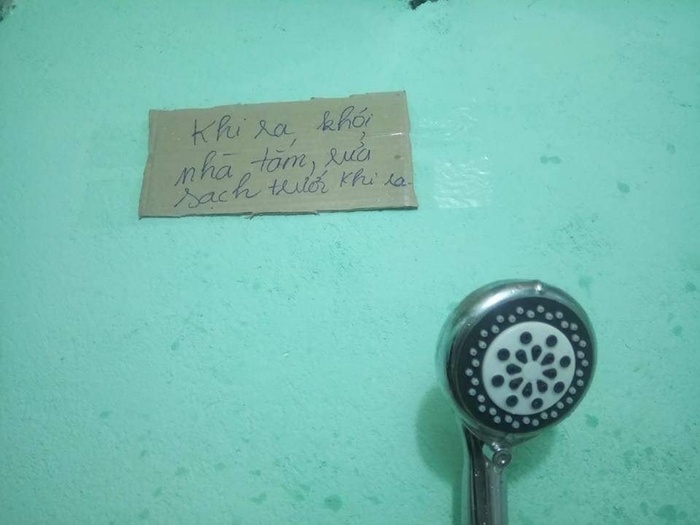 Khi ra khỏi
nhà tắm, rửa
sạch trước khi ra.